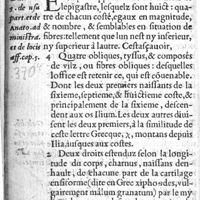 2. de usu
part. et de
anato. ad
ministra.
et de locis
aff. cap. 5.
E lepigastre, lesquelz sont huict: qua
tre de chacun costé, egaux en magnitude,
& nombre, & semblables en situation de
fibres: tellement que lun nest ny inferieur,
ny superieur à lautre. Cestasçauoir,
4 Quatre obliques, tyssus, & composés
de vilz, ou fibres obliques: desquelles
loffice est retenir ce, qui est cõuenable.
Dont les deux premiers naissants de la
sixieme, septieme, & huictieme coste, &
principalement de la sixieme, descen-
dent aux os Ilium. Les deux autres diui
sent les deux premiers, à la similitude de
ceste lettre Grecque, χ, montans depuis
Ilia, iusques aux costes.
2 Deux droits estendus selon la longi
tude du corps, charnus, naissans denhault, de chacune part de la cartilage
ensiforme (dite en Grec xiphoides, vul-
gairement malum granatum) par le my